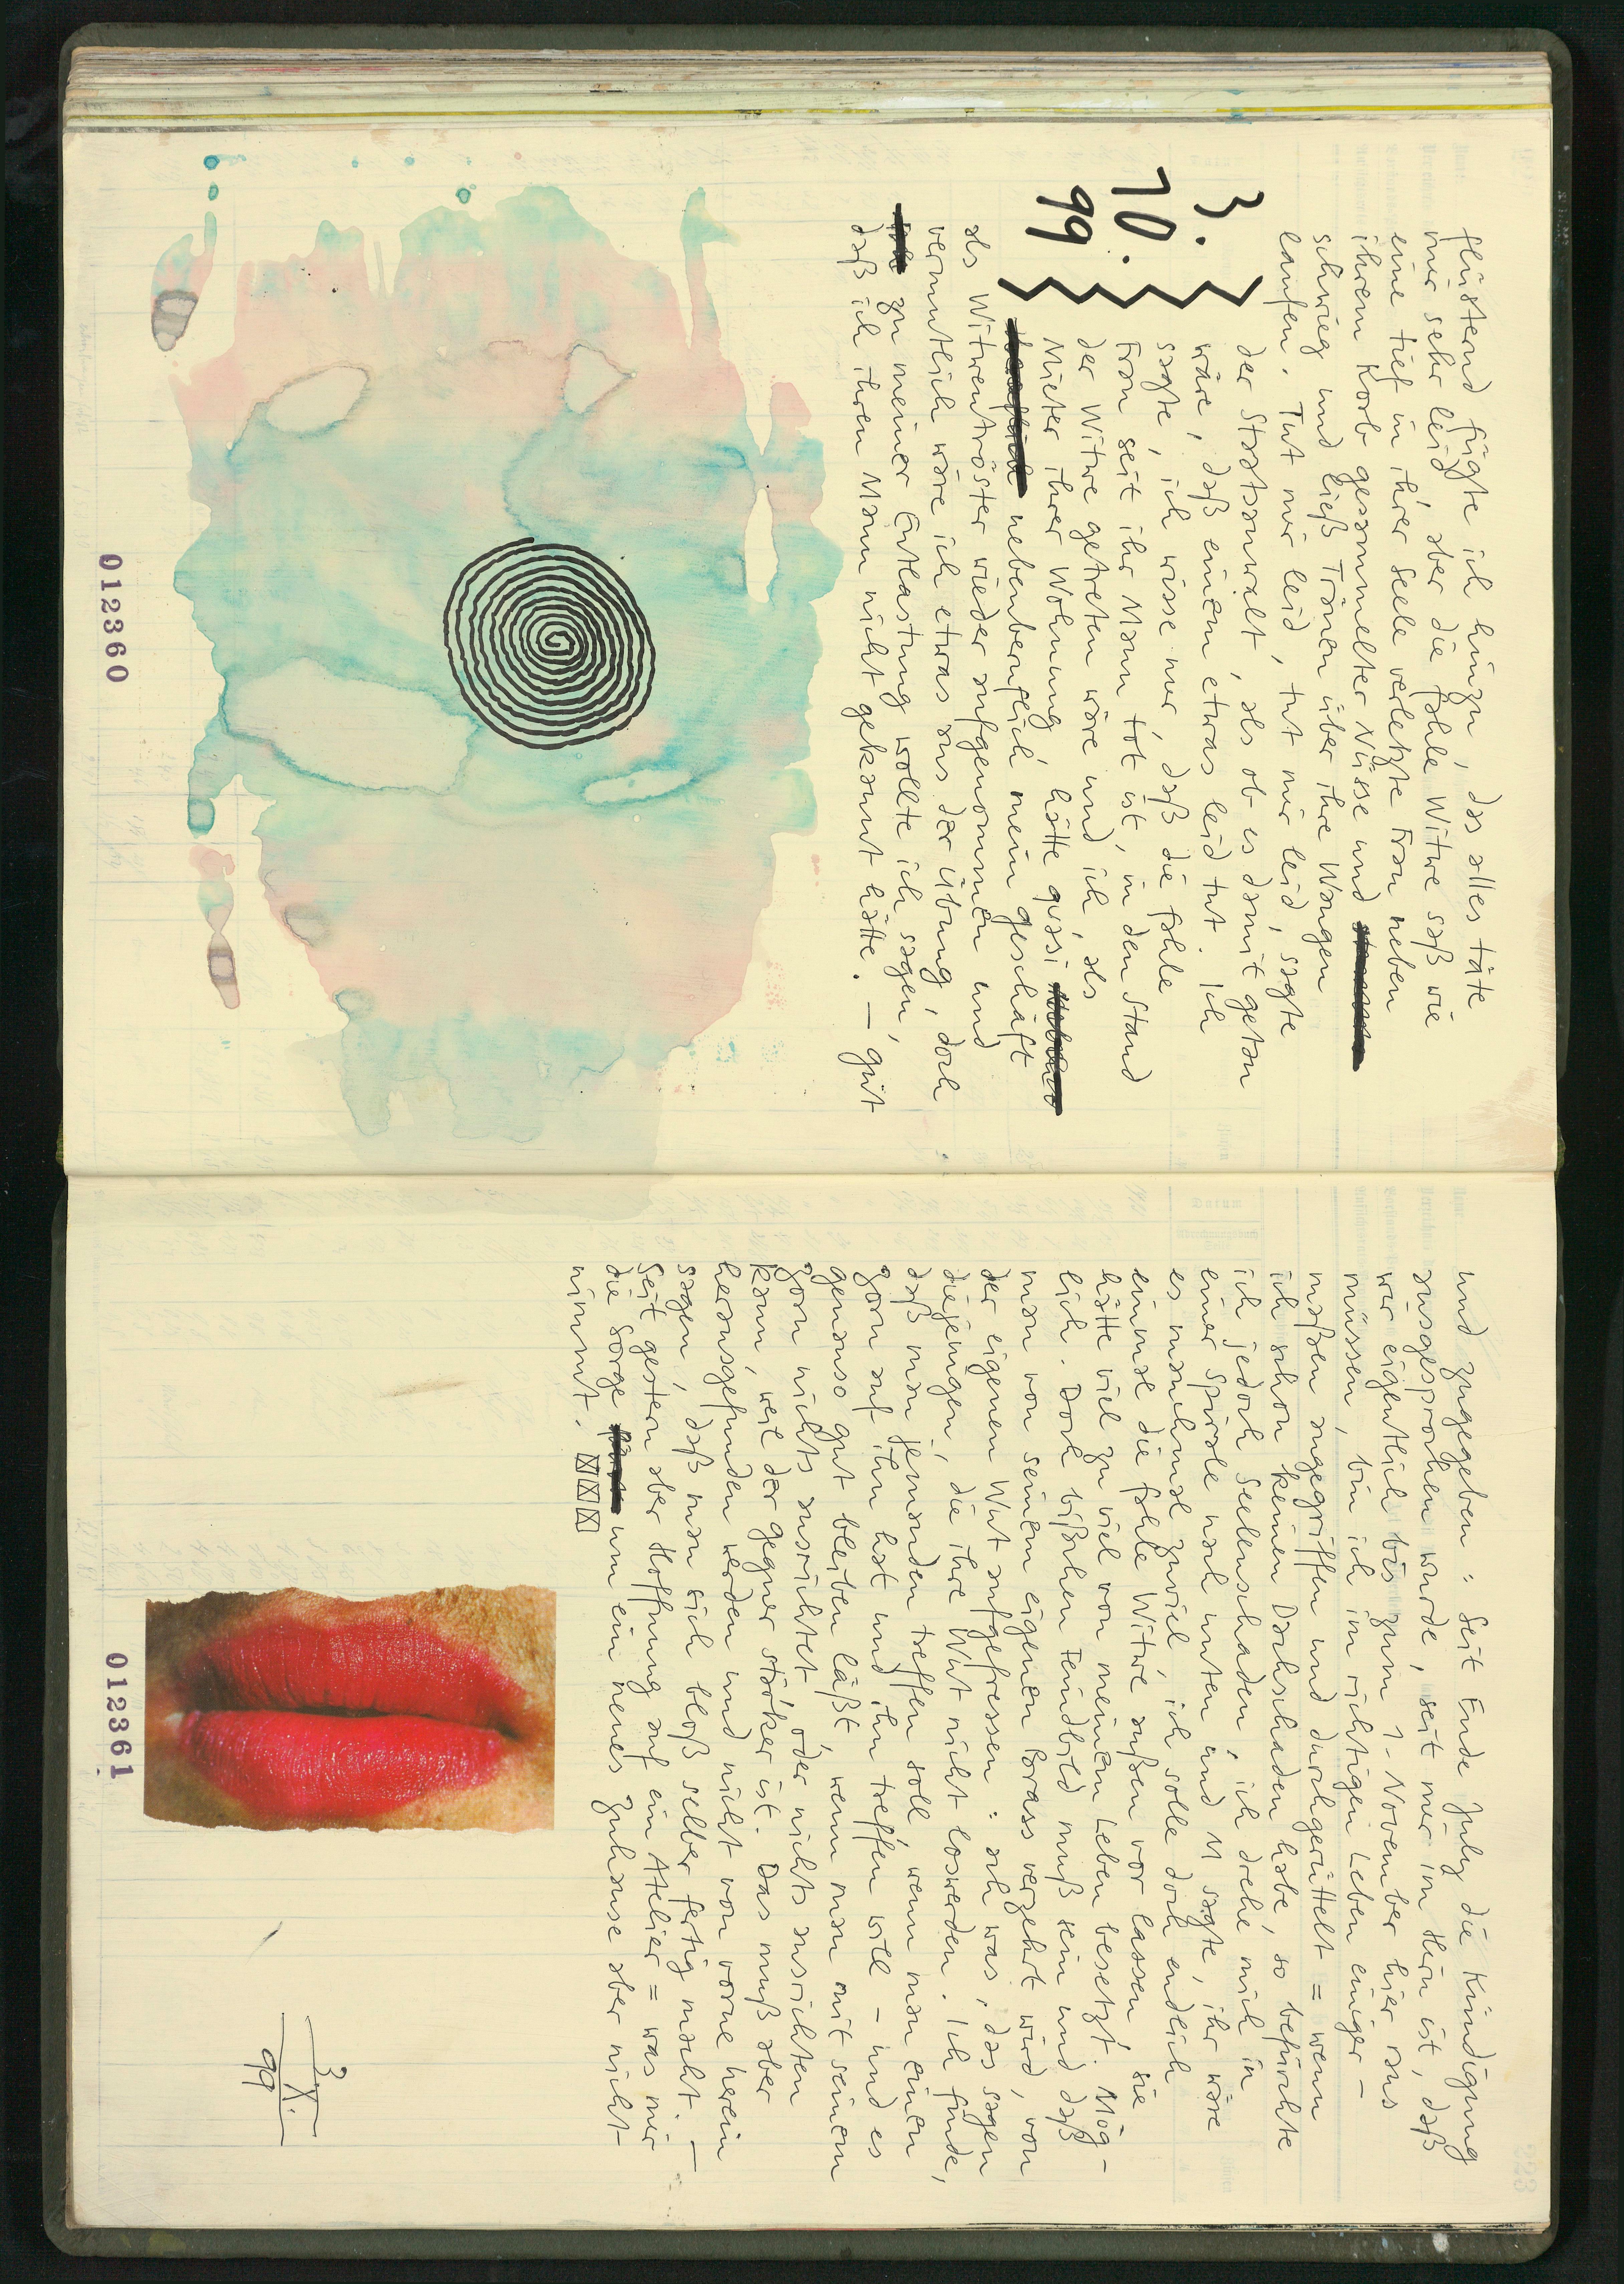 flüsternd fügte ich hinzu, das alles täte
mir sehr leid, aber die fahle Witwe saß wie
eine tief in ihrer Seele verletzte Frau neben
ihrem Korb gesammelter Nüsse und
schwieg und ließ Tränen über ihre Wangen
laufen. Tut mir leid, tut mir leid, sagte
der Staatsanwalt, als ob es damit getan
wäre, daß einem etwas leid tut. Ich
sagte, ich wisse nur, daß die fahle
Frau seit ihr Mann tot ist, in den Stand
der Witwe getreten wäre und ich, als
Mieter ihrer Wohnung, hätte quasi
nebenberuflich mein Geschäft
als Witwentröster wieder aufgenommen und
vermutlich wäre ich etwas aus der Übung, doch
zu meiner Entlastung wollte ich sagen,
daß ich ihren Mann nicht gekannt hätte. – gut
3.
10.
99
012360
und zugegeben: Seit Ende July die Kündigung
ausgesprochen wurde, seit mir im Hirn ist, daß
wir eigentlich bis zum 1. November hier raus
müssen, bin ich im richtigen Leben einiger-
maßen angegriffen und durchgerüttelt = wenn
ich schon keinen Dachschaden habe, so befürchte
ich jedoch Seelenschaden, ich drehe mich in
einer Spirale nach unten und M sagte, ihr wäre
es manchmal zuviel, ich solle doch endlich
einmal die fahle Witwe außen vor lassen, sie
hätte viel zu viel von meinem Leben besetzt. Mög-
lich. Doch bißchen Feindbild muß sein und daß
man von seinem eigenen Brass verzehrt wird, von
der eigenen Wut aufgefressen: ach was, das sagen
diejenigen, die ihre Wut nicht loswerden. Ich finde,
daß man jemanden treffen soll, wenn man einen
Zorn auf ihn hat und ihn treffen will – und es
genauso gut bleiben läßt, wenn man mit seinem
Zorn nichts ausrichtet oder nichts ausrichten
kann, weil der Gegner stärker ist. Das muß aber
herausgefunden werden und nicht von vorne herein
sagen, daß man sich bloß selber fertig macht. –
Seit gestern aber Hoffnung auf ein Atelier = was mir
die Sorge um ein neues Zuhause aber nicht
nimmt.
3.
X.
99
012361